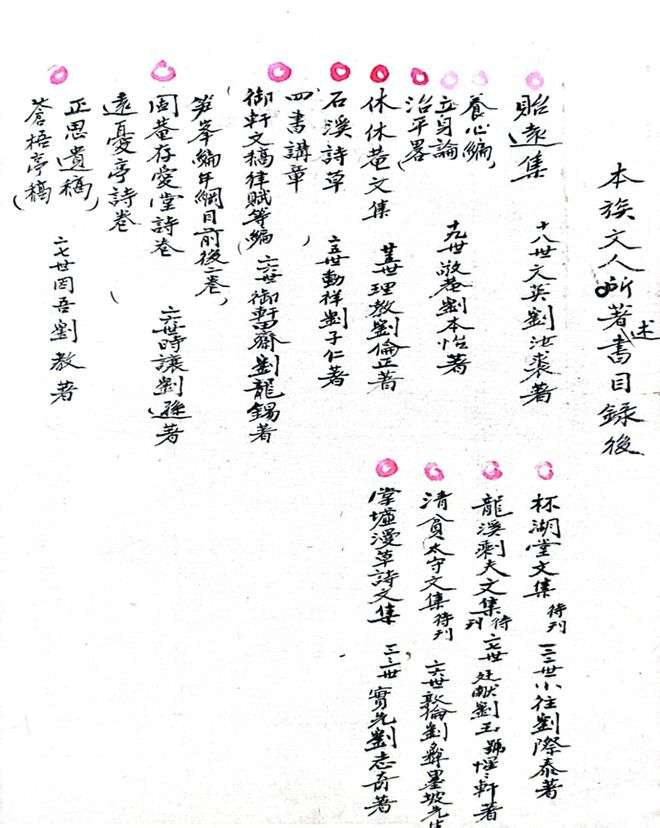 本族文人所著述書目録後
貽遠集
十八世文英劉汝裘著
養心編
立身論
治平畧
十九世敬菴劉本怡著
休休菴文集
廿五世理教劉倫正著
石溪詩草
廿五世動祥劉子仁著
四書講章
御軒文稿律賦等編
廿六世御軒思齋劉龍錫著
笋峯編年綱目前後二卷
固菴存愛堂詩卷
遠憂亭詩卷
廿六世時讓劉遜著
正思遺稿
蒼梧亭稿
廿七世罔吾劉教著
杯湖堂文集 待刊
三二世小往劉際泰著
龍溪剩夫文集 待刊
廿七世廷獻劉玉號惺軒著
清貧太守文集 待刊
廿六世敦倫劉彝墨坡先生
堂墟漫草詩文集
三三世實先劉志奇著